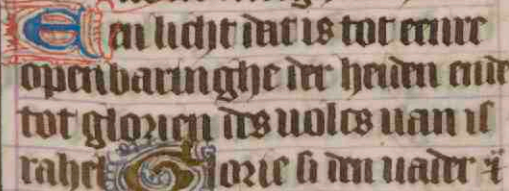 Een licht dat is tot eenre
openbaringhe der heiden ende
tot glorien des volcs van is
rahel Glorie si den vader